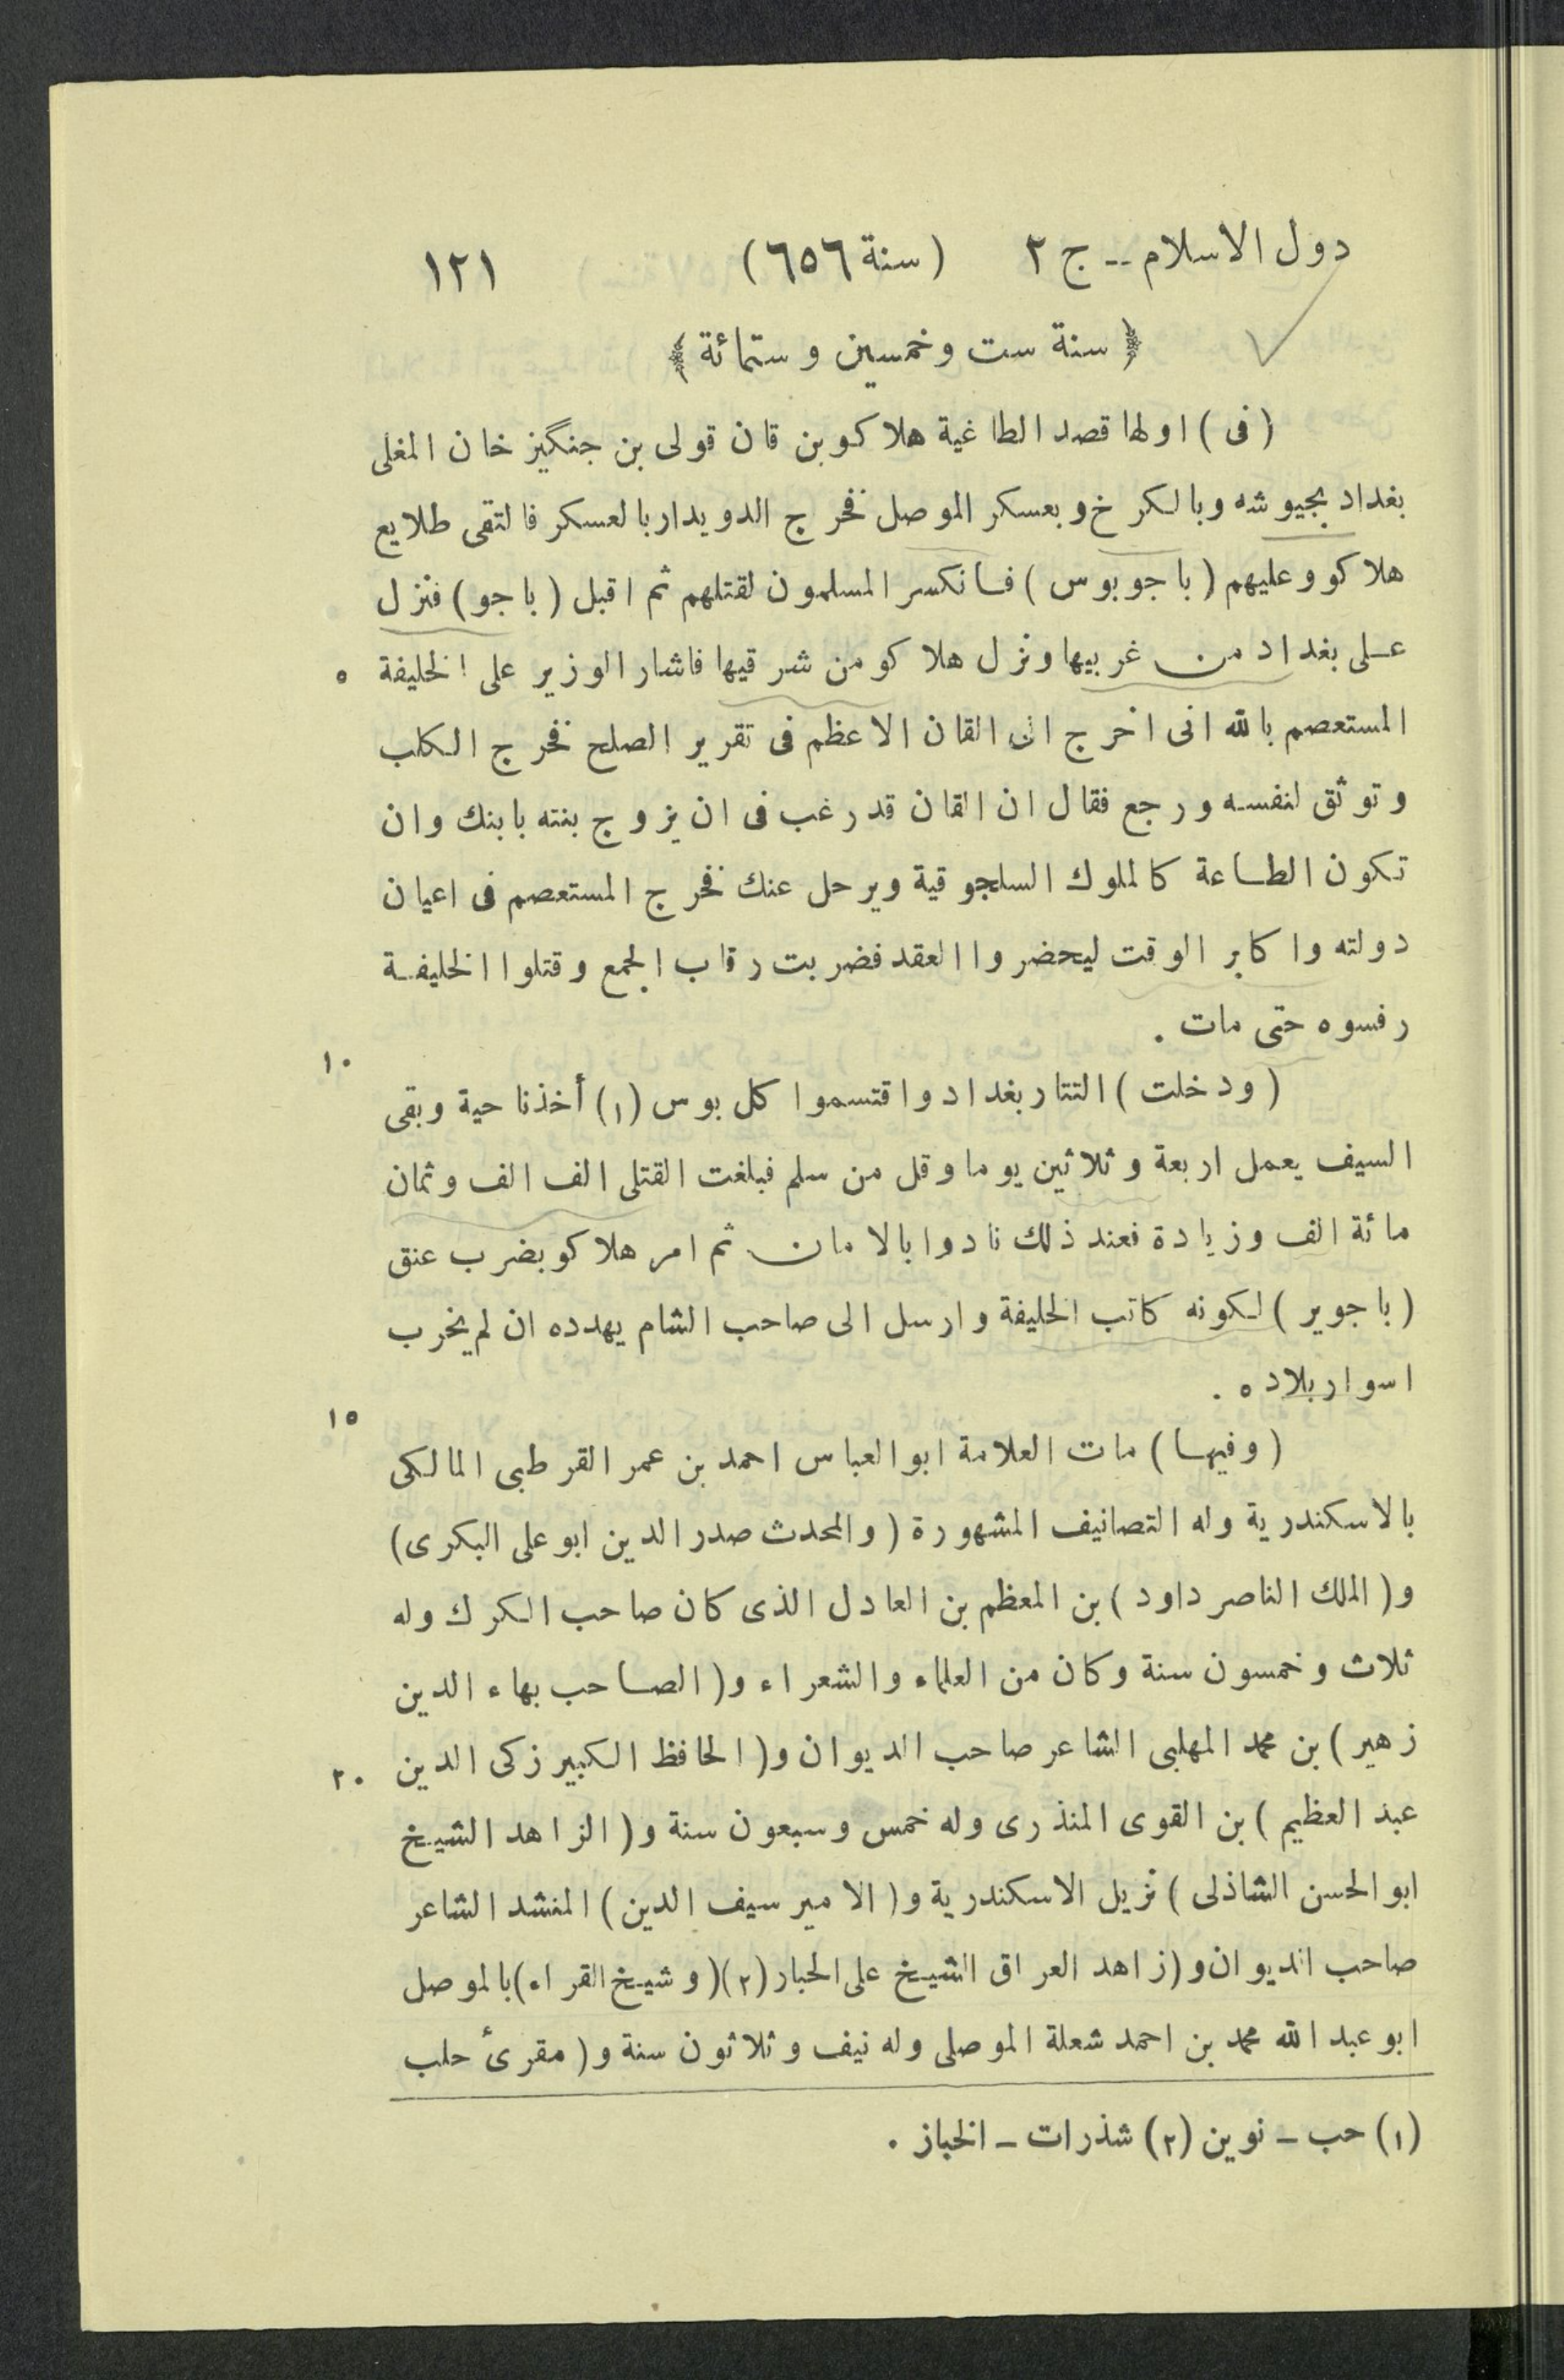 دول الاسلام -- ج ٢ (سنة ٦٥٦) ١٢١
﴿ سنة ست وخمسين وستمائة ﴾
(فى) اولها قصد الطاغية هلاكو بن قان قولى بن جنگيز خان المغلى
بغداد بجيوشه وبالكرخ وبعسكر الموصل فخرج الدويدار بالعسكر فالتقى طلايع
هلاكو وعليهم (باجوبوس) فانكسر المسلمون لقتلهم ثم اقبل (باجو) فنزل
على بغداد من غربيها ونزل هلاكو من شرقيها فاشار الوزير على الخليفة ٥
المستعصم بالله انى اخرج الى القان الاعظم فى تقرير الصلح فخرج الكلب
وتوثق لنفسه ورجع فقال ان القان قد رغب فى ان يزوج بنته بابنك وان
تكون الطاعة كالملوك السلجوقية ويرحل عنك فخرج المستعصم فى اعيان
دولته واكابر الوقت ليحضروا العقد فضربت رقاب الجمع وقتلوا الخليفة
رفسوه حتى مات .
١٠
(ودخلت) التتار بغداد واقتسموا كل بوس (١) أخذنا حية وبقى
السيف يعمل اربعة وثلاثين يوما وقل من سلم فبلغت القتلى الف الف وثمان
مائة الف وزيادة فعند ذلك نادوا بالامان ثم امر هلاكو بضرب عنق
(باجوير) لكونه كاتب الخليفة وارسل الى صاحب الشام يهدده ان لم يخرب
اسوار بلاده .
١٥
(وفيها) مات العلامة ابو العباس احمد بن عمر القرطبى المالكى
بالاسكندرية وله التصانيف المشهورة (والمحدث صدر الدين ابو على البكرى)
و(الملك الناصر داود) بن المعظم بن العادل الذى كان صاحب الكرك وله
ثلاث وخمسون سنة وكان من العلماء والشعراء و(الصاحب بهاء الدين
زهير) بن محمد المهلبى الشاعر صاحب الديوان و(الحافظ الكبير زكى الدين ٢٠
عبد العظيم) بن القوى المنذرى وله خمس وسبعون سنة و(الزاهد الشيخ
ابو الحسن الشاذلى) نزيل الاسكندرية و(الامير سيف الدين) المنشد الشاعر
صاحب الديوان و(زاهد العراق الشيخ على الحبار (٢) (وشيخ القراء) بالموصل
ابو عبد الله محمد بن احمد شعلة الموصلى وله نيف وثلاثون سنة و(مقرئ حلب
(١) حب - نوين (٢) شذرات - الخباز .